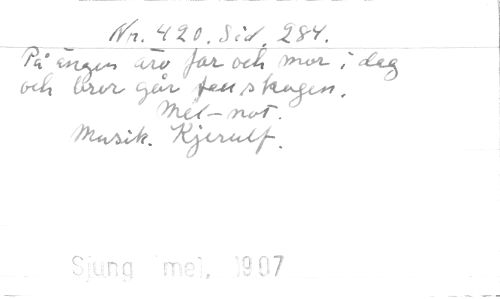 Nr. 420. Sid. 284.
På ängen äro far och mor i dag
och bror går skogen.
Mel-not.
Musik. Kjerulf.
Sjung med, 1907